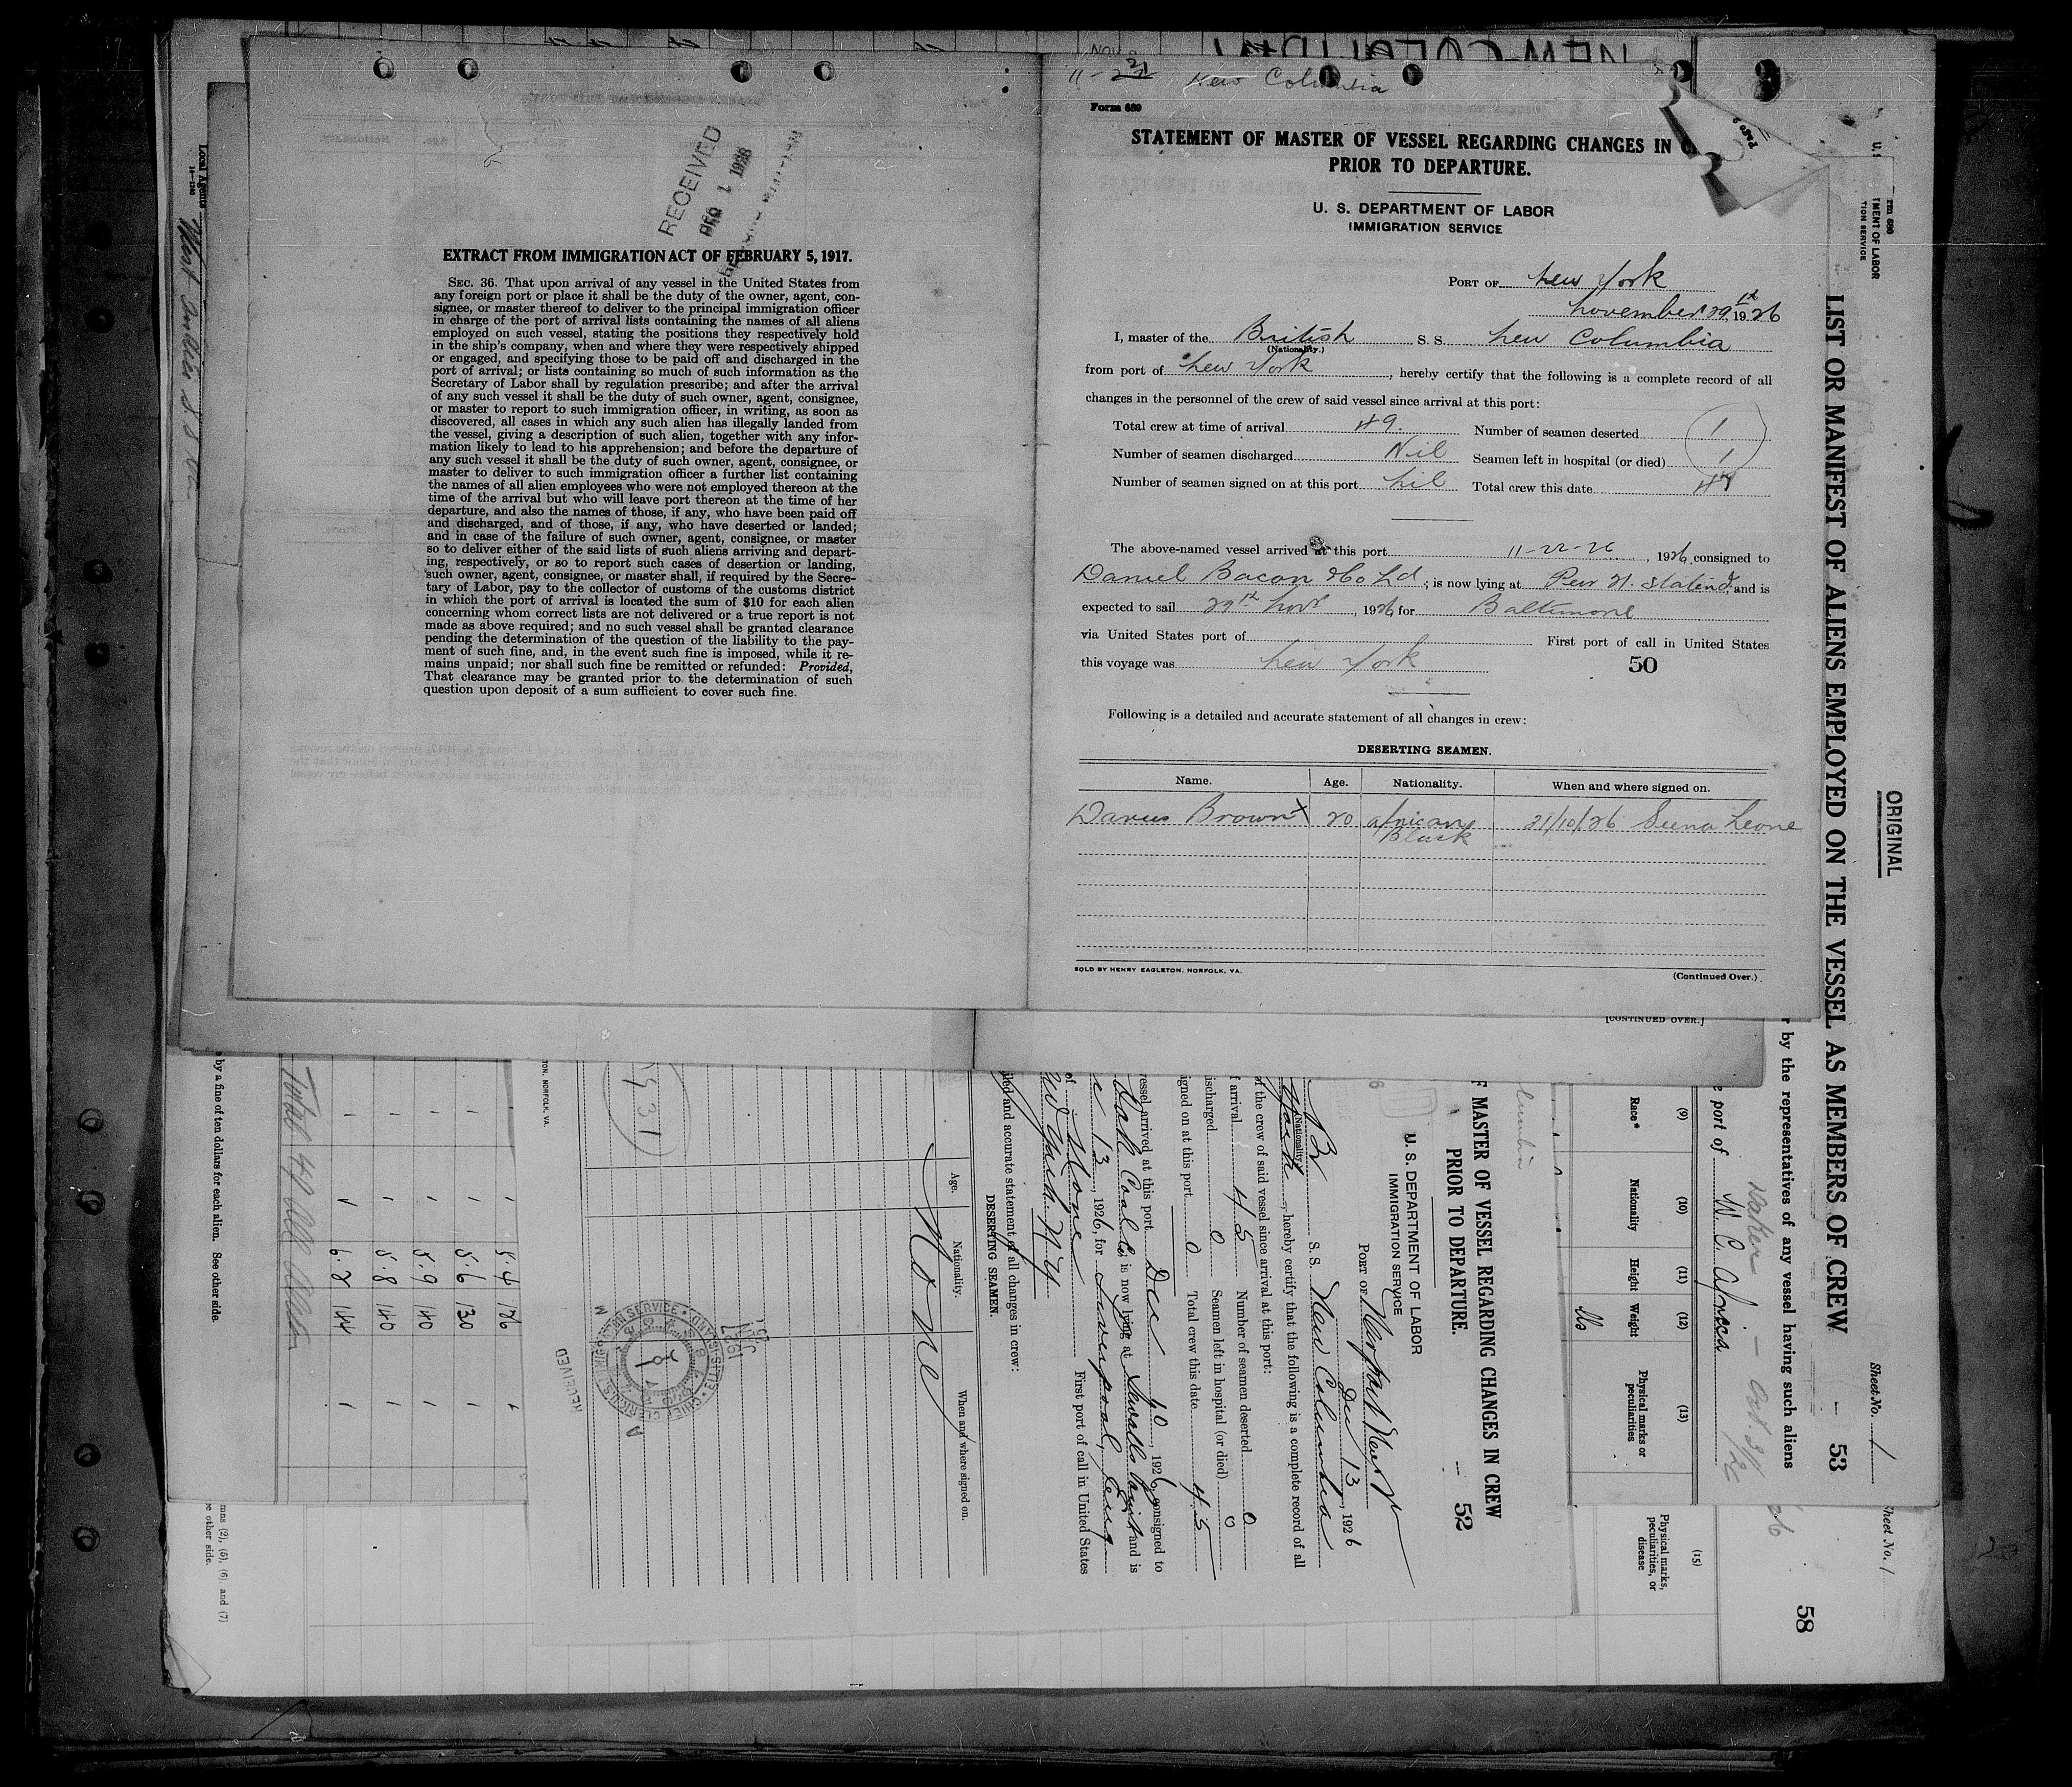 NEW COLUMBIA
11-22 New Columbia
Form 689
STATEMENT OF MASTER OF VESSEL REGARDING CHANGES IN
PRIOR TO DEPARTURE.
U. S. DEPARTMENT OF LABOR
IMMIGRATION SERVICE
PORT OF New York
November 29th, 1926
I, master of the British S. S. New Columbia
(Nationality.)
from port of New York, hereby certify that the following is a complete record of all
changes in the personnel of the crew of said vessel since arrival at this port:
Total crew at time of arrival 49. Number of seamen deserted 1
Number of seamen discharged Nil Seamen left in hospital (or died) 1
Number of seamen signed on at this port Nil Total crew this date 47
The above-named vessel arrived at this port 11-22-26, 1926, consigned to
Daniel Bacon & Co Ld; is now lying at Pier 21. Staten Id and is
expected to sail 29th Novr, 1926 for Baltimore
via United States port of First port of call in United States
this voyage was New York 50
Following is a detailed and accurate statement of all changes in crew:
DESERTING SEAMEN.
Name. Age. Nationality. When and where signed on.
Darius Brown X 20 African Black 21/10/26 Sierra Leone
SOLD BY HENRY EAGLETON, NORFOLK, VA.
(Continued Over.)
RECEIVED
DEC 1 1926
EXTRACT FROM IMMIGRATION ACT OF FEBRUARY 5, 1917.
SEC. 36. That upon arrival of any vessel in the United States from
any foreign port or place it shall be the duty of the owner, agent, con-
signee, or master thereof to deliver to the principal immigration officer
in charge of the port of arrival lists containing the names of all aliens
employed on such vessel, stating the positions they respectively hold
in the ship's company, when and where they were respectively shipped
or engaged, and specifying those to be paid off and discharged in the
port of arrival; or lists containing so much of such information as the
Secretary of Labor shall by regulation prescribe; and after the arrival
of any such vessel it shall be the duty of such owner, agent, consignee,
or master to report to such immigration officer, in writing, as soon as
discovered, all cases in which any such alien has illegally landed from
the vessel, giving a description of such alien, together with any infor-
mation likely to lead to his apprehension; and before the departure of
any such vessel it shall be the duty of such owner, agent, consignee, or
master to deliver to such immigration officer a further list containing
the names of all alien employees who were not employed thereon at the
time of the arrival but who will leave port thereon at the time of her
departure, and also the names of those, if any, who have been paid off
and discharged, and of those, if any, who have deserted or landed;
and in case of the failure of such owner, agent, consignee, or master
so to deliver either of the said lists of such aliens arriving and depart-
ing, respectively, or so to report such cases of desertion or landing,
such owner, agent, consignee, or master shall, if required by the Secre-
tary of Labor, pay to the collector of customs of the customs district
in which the port of arrival is located the sum of $10 for each alien
concerning whom correct lists are not delivered or a true report is not
made as above required; and no such vessel shall be granted clearance
pending the determination of the question of the liability to the pay-
ment of such fine, and, in the event such fine is imposed, while it re-
mains unpaid; nor shall such fine be remitted or refunded: Provided,
That clearance may be granted prior to the determination of such
question upon deposit of a sum sufficient to cover such fine.
ORIGINAL
Sheet No. 1
LIST OR MANIFEST OF ALIENS EMPLOYED ON THE VESSEL AS MEMBERS OF CREW - 53
by the representatives of any vessel having such aliens
port of W. C. Africa
(9) (10) (11) (12) (13)
Race* Nationality Height Weight Physical marks or peculiarities
[CONTINUED OVER.]
F MASTER OF VESSEL REGARDING CHANGES IN CREW
PRIOR TO DEPARTURE. - 52
U. S. DEPARTMENT OF LABOR
IMMIGRATION SERVICE
PORT OF Newport News Va
Dec 13, 1926
Br S. S. New Columbia
(Nationality)
York, hereby certify that the following is a complete record of all
of the crew of said vessel since arrival at this port:
f arrival 45 Number of seamen deserted 0
ischarged 0 Seamen left in hospital (or died) 0
igned on at this port 0 Total crew this date 45
vessel arrived at this port Dec 10, 1926, consigned to
Coal Co is now lying at Sewalls Point and is
13, 1926, for Liverpool, Eng
of None First port of call in United States
New York N. Y.
iled and accurate statement of all changes in crew:
DESERTING SEAMEN.
Age. Nationality. When and where signed on.
None
ION, NORFOLK, VA.
RECEIVED
5.4 126
5.6 130
5.9 140
5.8 140
6.2 144
Total 49 All Alien
e by a fine of ten dollars for each alien. See other side.
Local Agents
West Indies S S Co
Sheet No. 1
58
(15)
Physical marks, peculiarities, or disease
mns (2), (5), (6), and (7)
e other side.